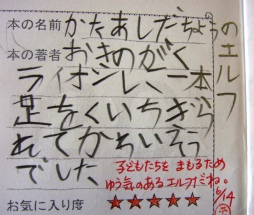 本の名前 かたあしだちょうのエルフ
本の著者 おきのがく
ライオンに、一本
足をくいちぎら
れてかわいそう
でした
子どもたちを まもるため
ゆう気のある エルフだね。
お気に入り度 ★★★★★
6/14